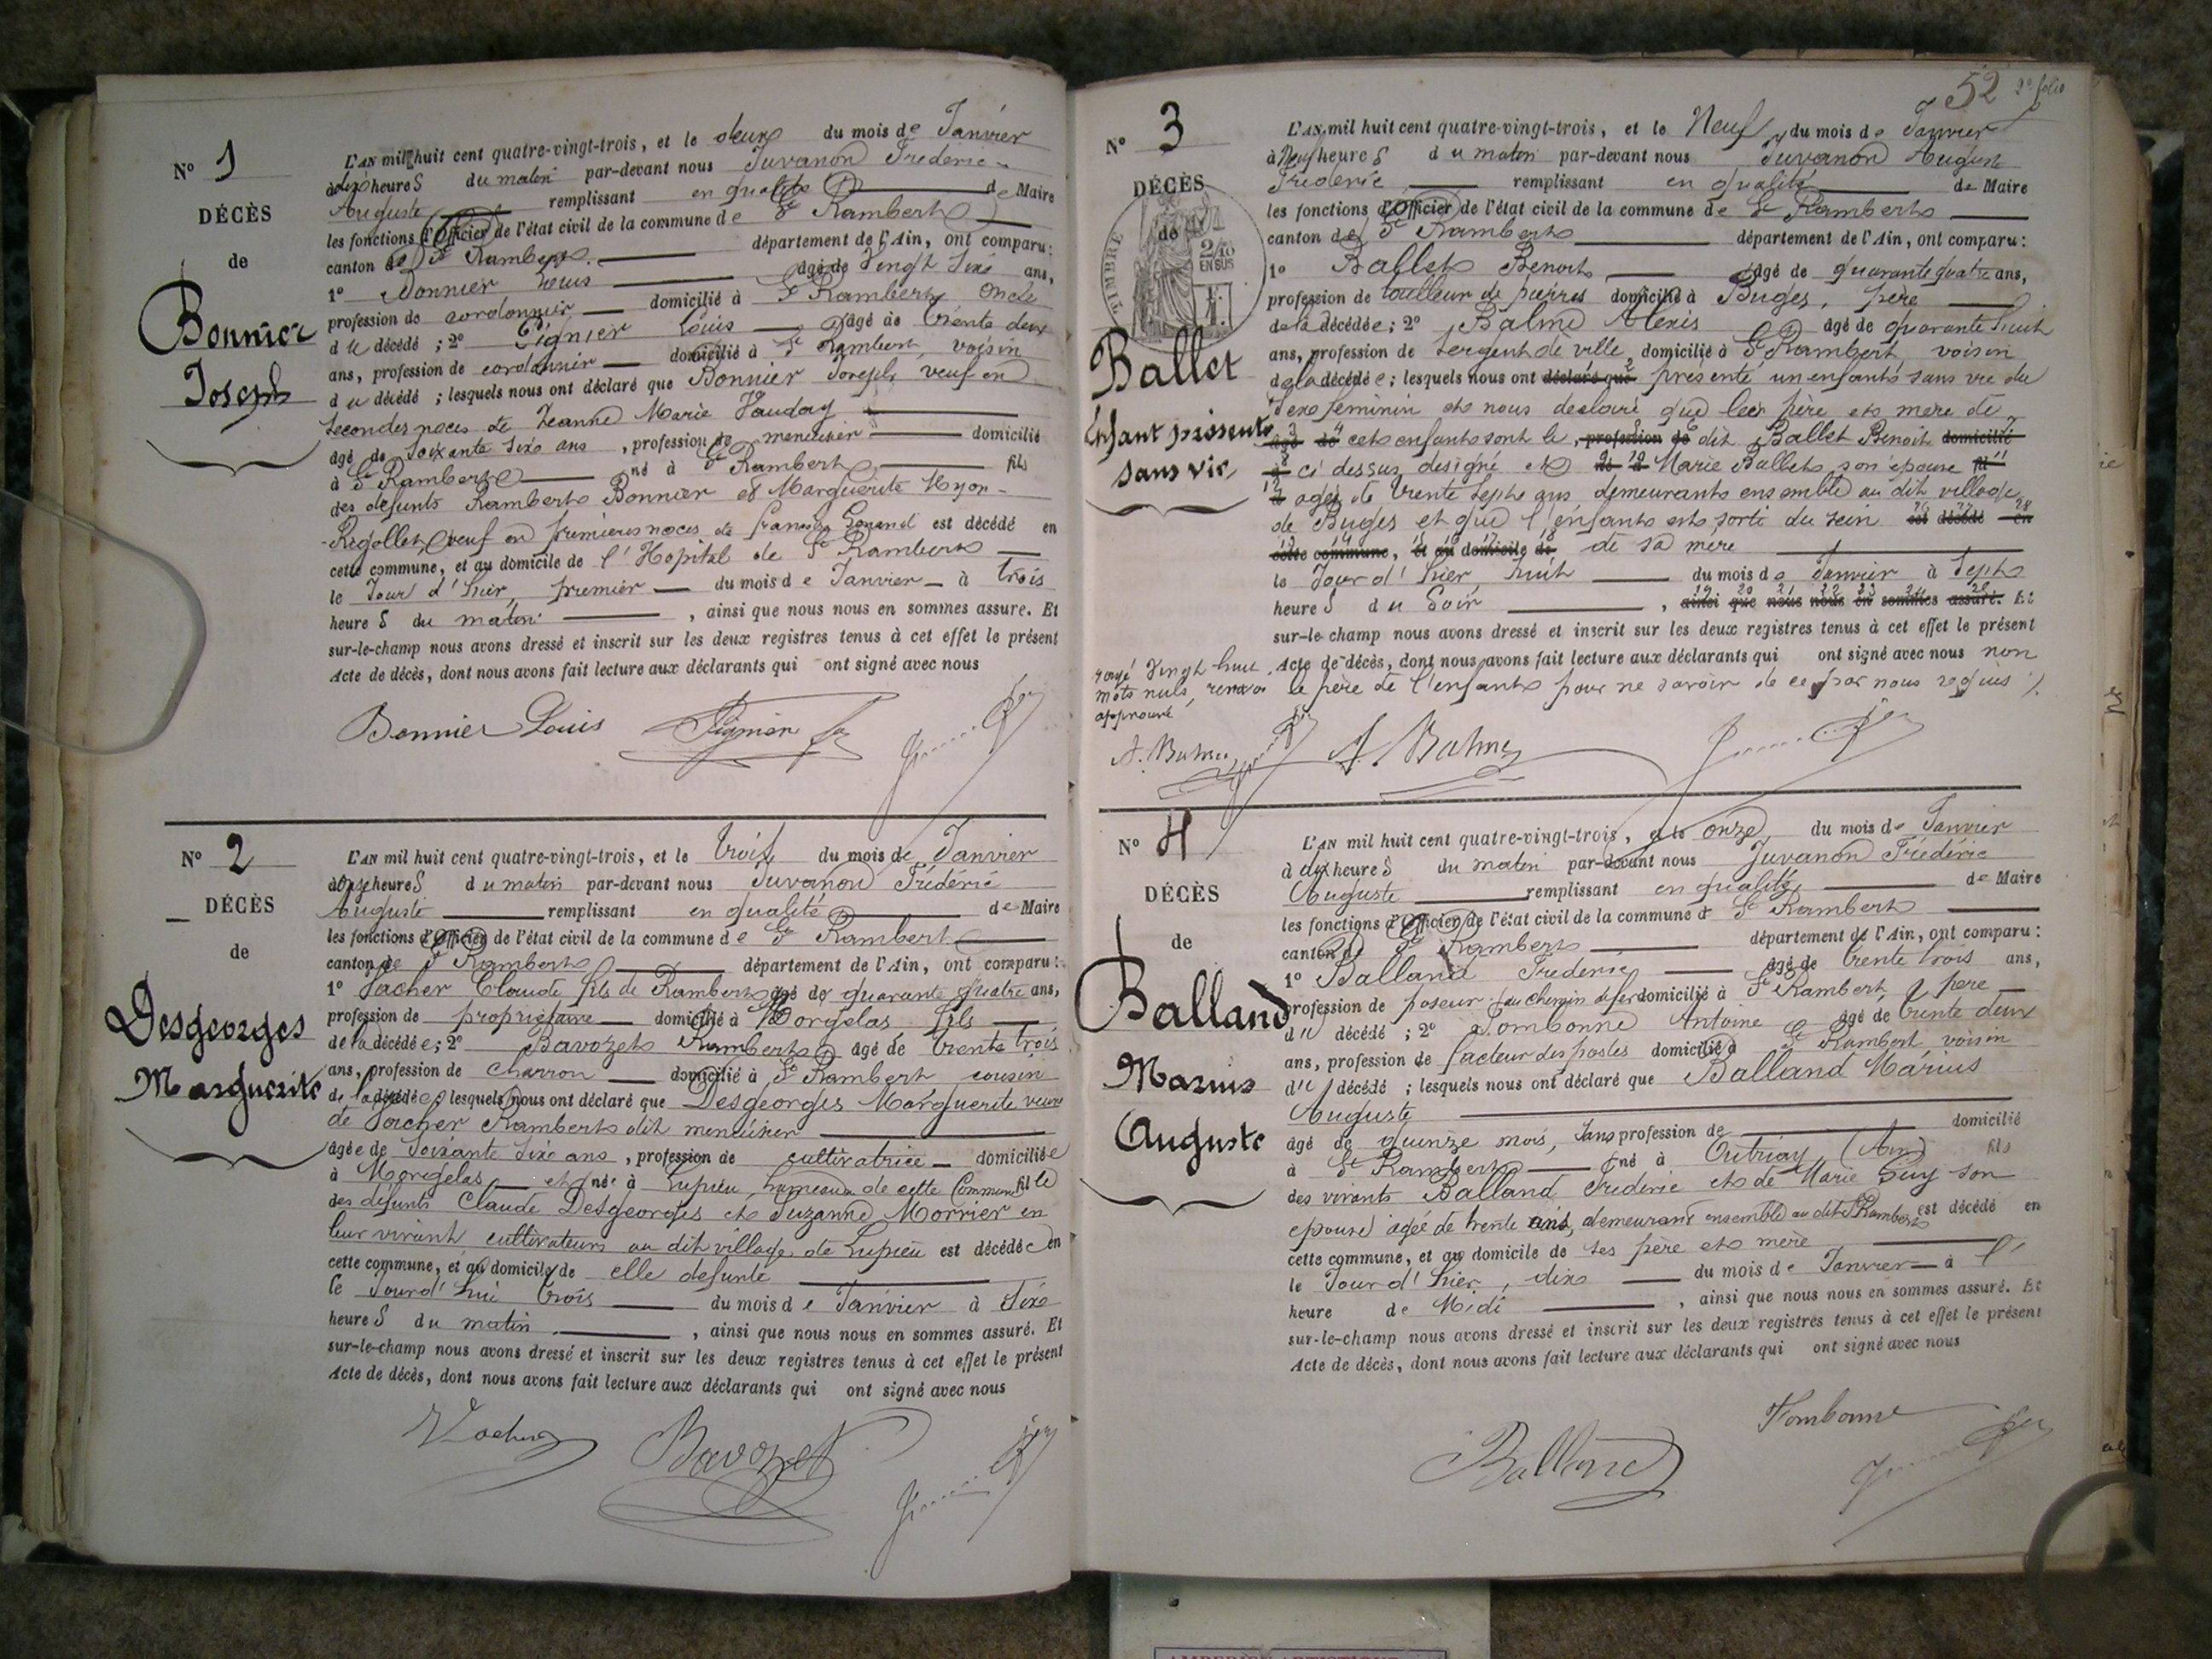 N° 1
DÉCÈS
de
Bonnier
Joseph
L'AN mil huit cent quatre-vingt-trois, et le deux du mois de Janvier
à dix heures du matin par-devant nous Juvanon Frédéric
Auguste remplissant en qualité de Maire
les fonctions d'Officier de l'état civil de la commune de St Rambert
canton de St Rambert département de l'Ain, ont comparu:
1° Bonnier Louis âgé de Vingt Six ans,
profession de cordonnier domicilié à St Rambert Oncle
du décédé; 2° Pignier Louis âgé de trente deux
ans, profession de cordonnier domicilié à St Rambert, voisin
du décédé; lesquels nous ont déclaré que Bonnier Joseph, veuf en
secondes noces de Jeanne Marie Vauday
âgé de Soixante Six ans, profession de menuisier domicilié
à St Rambert né à St Rambert fils
des défunts Rambert Bonnier et Marguerite
Rigollet, veuf en premières noces de est décédé en
cette commune, et au domicile de l'Hopital de St Rambert
le Jour d'hier, premier du mois de Janvier à trois
heures du matin, ainsi que nous nous en sommes assuré. Et
sur-le-champ nous avons dressé et inscrit sur les deux registres tenus à cet effet le présent
Acte de décès, dont nous avons fait lecture aux déclarants qui ont signé avec nous
Bonnier Louis Pignier
N° 2
DÉCÈS
de
Desgeorges
Marguerite
L'AN mil huit cent quatre-vingt-trois, et le trois du mois de Janvier
à onze heures du matin par-devant nous Juvanon Frédéric
Auguste remplissant en qualité de Maire
les fonctions d'Officier de l'état civil de la commune de St Rambert
canton de St Rambert département de l'Ain, ont comparu:
1° Claude fils de Rambert âgé de quarante quatre ans,
profession de propriétaire domicilié à Morgelas, fils
de la décédée; 2° Bavozet Rambert âgé de trente trois
ans, profession de charron domicilié à St Rambert cousin
de la décédée lesquels nous ont déclaré que Desgeorges Marguerite veuve
de Rambert dit menuisier
âgée de Soixante Six ans, profession de cultivatrice domiciliée
à Morgelas et née à Lupieu, hameau de cette Commune fille
des défunts Claude Desgeorges et Suzanne Morrier en
leur vivant cultivateurs au dit village de Lupieu est décédée en
cette commune, et au domicile de elle defunte
le Jourd'hui trois du mois de Janvier à Six
heures du matin, ainsi que nous nous en sommes assuré. Et
sur-le-champ nous avons dressé et inscrit sur les deux registres tenus à cet effet le présent
Acte de décès, dont nous avons fait lecture aux déclarants qui ont signé avec nous
Bavozet
52 2e folio
N° 3
DÉCÈS
de
TIMBRE
2/10
EN SUS
Ballet
Enfant présenté
sans vie
L'AN mil huit cent quatre-vingt-trois, et le Neuf du mois de Janvier
à Neuf heures du matin par-devant nous Juvanon Auguste
Frederic remplissant en qualité de Maire
les fonctions d'Officier de l'état civil de la commune de St Rambert
canton de St Rambert département de l'Ain, ont comparu:
1° Ballet Benoit âgé de quarante quatre ans,
profession de tailleur de pierres domicilié à Buges, père
de la décédée; 2° Balme Alexis âgé de quarante huit
ans, profession de Sergent de ville, domicilié à St Rambert voisin
de la décédée; lesquels nous ont déclaré que présenté un enfant sans vie du
Sexe féminin et nous declaré que les père et mere de
âgé de cet enfant sont le, profession de dit Ballet Benoit domicilié
à ci dessus designé et né à Marie Ballet son épouse
agée de trente sept ans demeurants ensemble au dit village
de Buges et que l'enfant est sorti du sein est décédé en
cette commune, et au domicile de de sa mère
le Jour d'hier, huit du mois de Janvier à Sept
heures du Soir, ainsi que nous nous en sommes assuré. Et
sur-le-champ nous avons dressé et inscrit sur les deux registres tenus à cet effet le présent
Acte de décès, dont nous avons fait lecture aux déclarants qui ont signé avec nous non
le père de l'enfant pour ne savoir de ce par nous requis
rayé Vingt huit
mots nuls, renvoi
approuvé
A. Balme A. Balme
N° 4
DÉCÈS
de
Balland
Marius
Auguste
L'AN mil huit cent quatre-vingt-trois, et le onze du mois de Janvier
à dix heures du matin par-devant nous Juvanon Frédéric
Auguste remplissant en qualité de Maire
les fonctions d'Officier de l'état civil de la commune d St Rambert
canton de St Rambert département de l'Ain, ont comparu:
1° Balland Frederic âgé de trente trois ans,
profession de poseur au chemin de fer domicilié à St Rambert, père
du décédé; 2° Tombonne Antoine âgé de trente deux
ans, profession de facteur des postes domicilié à St Rambert voisin
du décédé; lesquels nous ont déclaré que Balland Marius
Auguste
âgé de quinze mois, sans profession de domicilié
à St Rambert né à Outriaz (Ain) fils
des vivants Balland Frederic et de Marie Guy son
epouse agée de trente ans, demeurant ensemble au dit St Rambert est décédé en
cette commune, et au domicile de ses père et mère
le Jour d'hier, dix du mois de Janvier à l'
heure de Midi, ainsi que nous nous en sommes assuré. Et
sur-le-champ nous avons dressé et inscrit sur les deux registres tenus à cet effet le présent
Acte de décès, dont nous avons fait lecture aux déclarants qui ont signé avec nous
Balland Tombonne